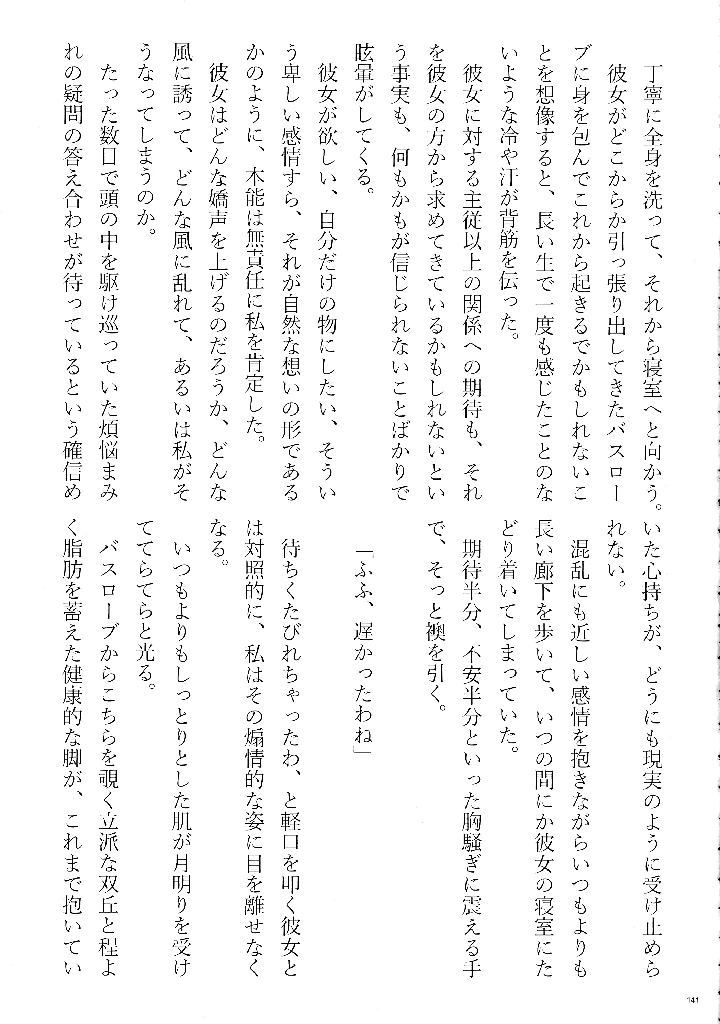 丁寧に全身を洗って、それから寝室へと向かう。
彼女がどこからか引っ張り出してきたバスロー
ブに身を包んでこれから起きるでかもしれないこ
とを想像すると、長い生で一度も感じたことのな
いような冷や汗が背筋を伝った。
彼女に対する主従以上の関係への期待も、それ
を彼女の方から求めてきているかもしれないとい
う事実も、何もかもが信じられないことばかりで
眩暈がしてくる。
彼女が欲しい、自分だけの物にしたい、そうい
う卑しい感情すら、それが自然な想いの形である
かのように、本能は無責任に私を肯定した。
彼女はどんな嬌声を上げるのだろうか、どんな
風に誘って、どんな風に乱れて、あるいは私がそ
うなってしまうのか。
たった数口で頭の中を駆け巡っていた煩悩まみ
れの疑問の答え合わせが待っているという確信め
いた心持ちが、どうにも現実のように受け止めら
れない。
混乱にも近しい感情を抱きながらいつもよりも
長い廊下を歩いて、いつの間にか彼女の寝室にた
どり着いてしまっていた。
期待半分、不安半分といった胸騒ぎに震える手
で、そっと襖を引く。
「ふふ、遅かったわね」
待ちくたびれちゃったわ、と軽口を叩く彼女と
は対照的に、私はその煽情的な姿に目を離せなく
なる。
いつもよりもしっとりとした肌が月明りを受け
ててらてらと光る。
バスローブからこちらを覗く立派な双丘と程よ
く脂肪を蓄えた健康的な脚が、これまで抱いてい
141